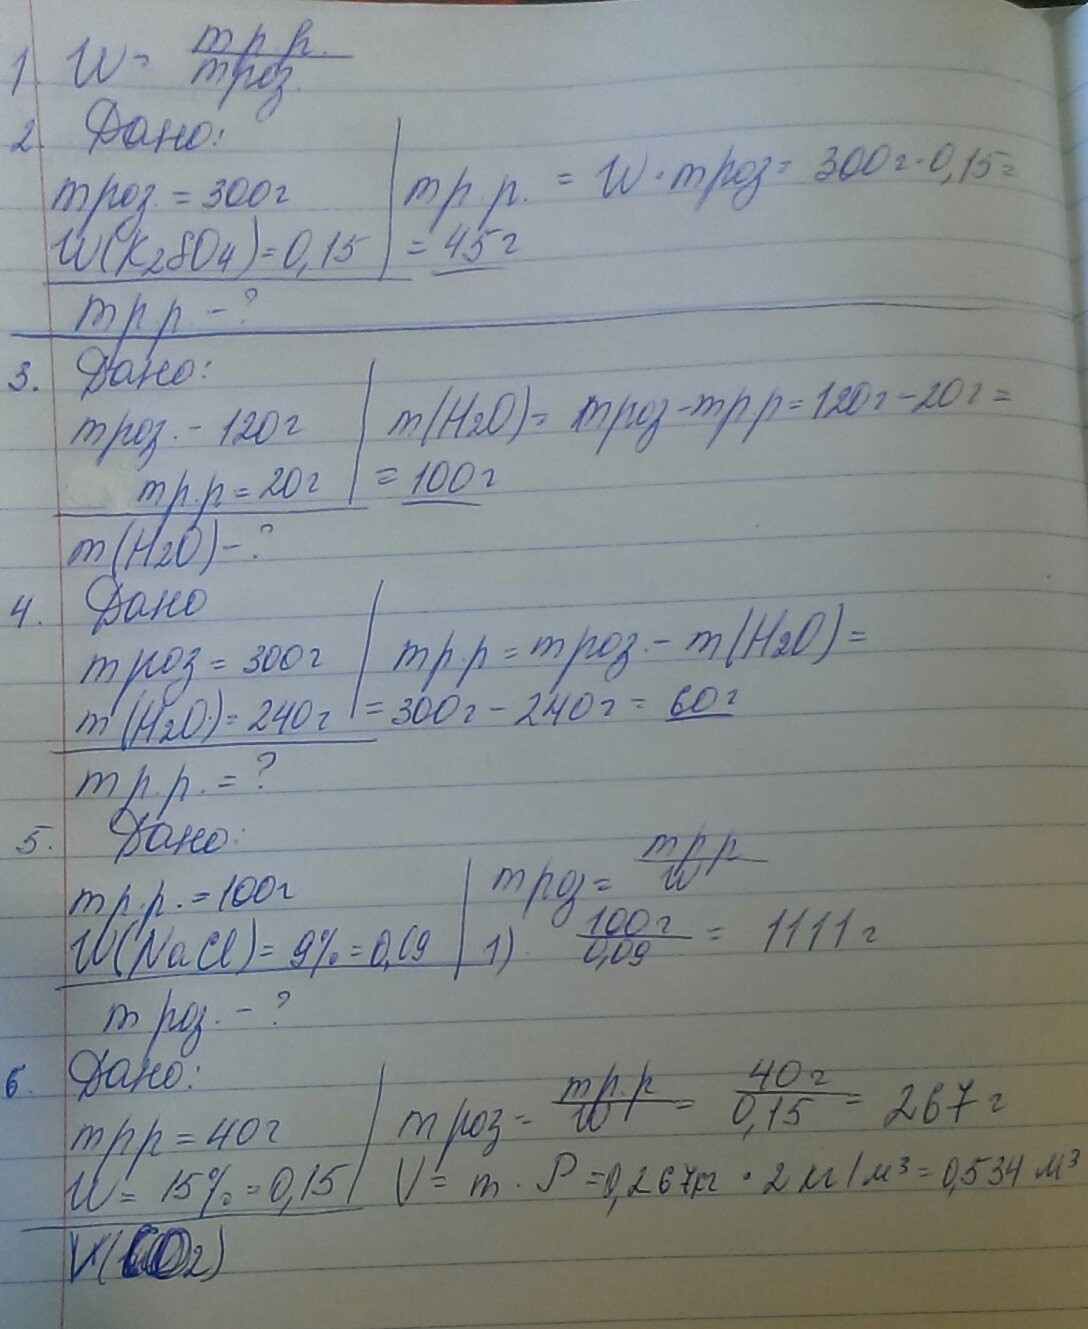 1. W = m р.р. / m роз.
2. Дано:
m роз. = 300г
W(K2SO4) = 0,15
m р.р. = W · m роз = 300г · 0,15 =
= 45г
m р р - ?
3. Дано:
m роз. - 120г
m р.р = 20г
m(H2O) = m роз - m р р = 120г - 20г =
= 100г
m(H2O) - ?
4. Дано
m роз = 300г
m(H2O) = 240г
m р.р = m роз. - m(H2O) =
= 300г - 240г = 60г
m р.р. = ?
5. Дано:
m р.р. = 100г
W(NaCl) = 9% = 0,09
m роз = m р р / W
1) 100г / 0,09 = 1111г
m роз. - ?
6. Дано:
m р р = 40г
W = 15% = 0,15
m роз = m р.р / W = 40г / 0,15 = 267г
V = m · P = 0,267кг · 2 кг/м³ = 0,534 м³
V(CO2)